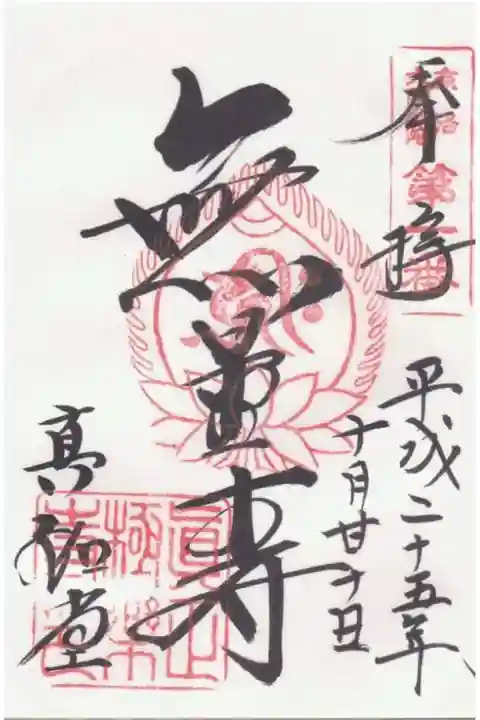 奉拝
第一番
平成二十五年
十月廿日
無量寿
真如堂
真正極楽寺